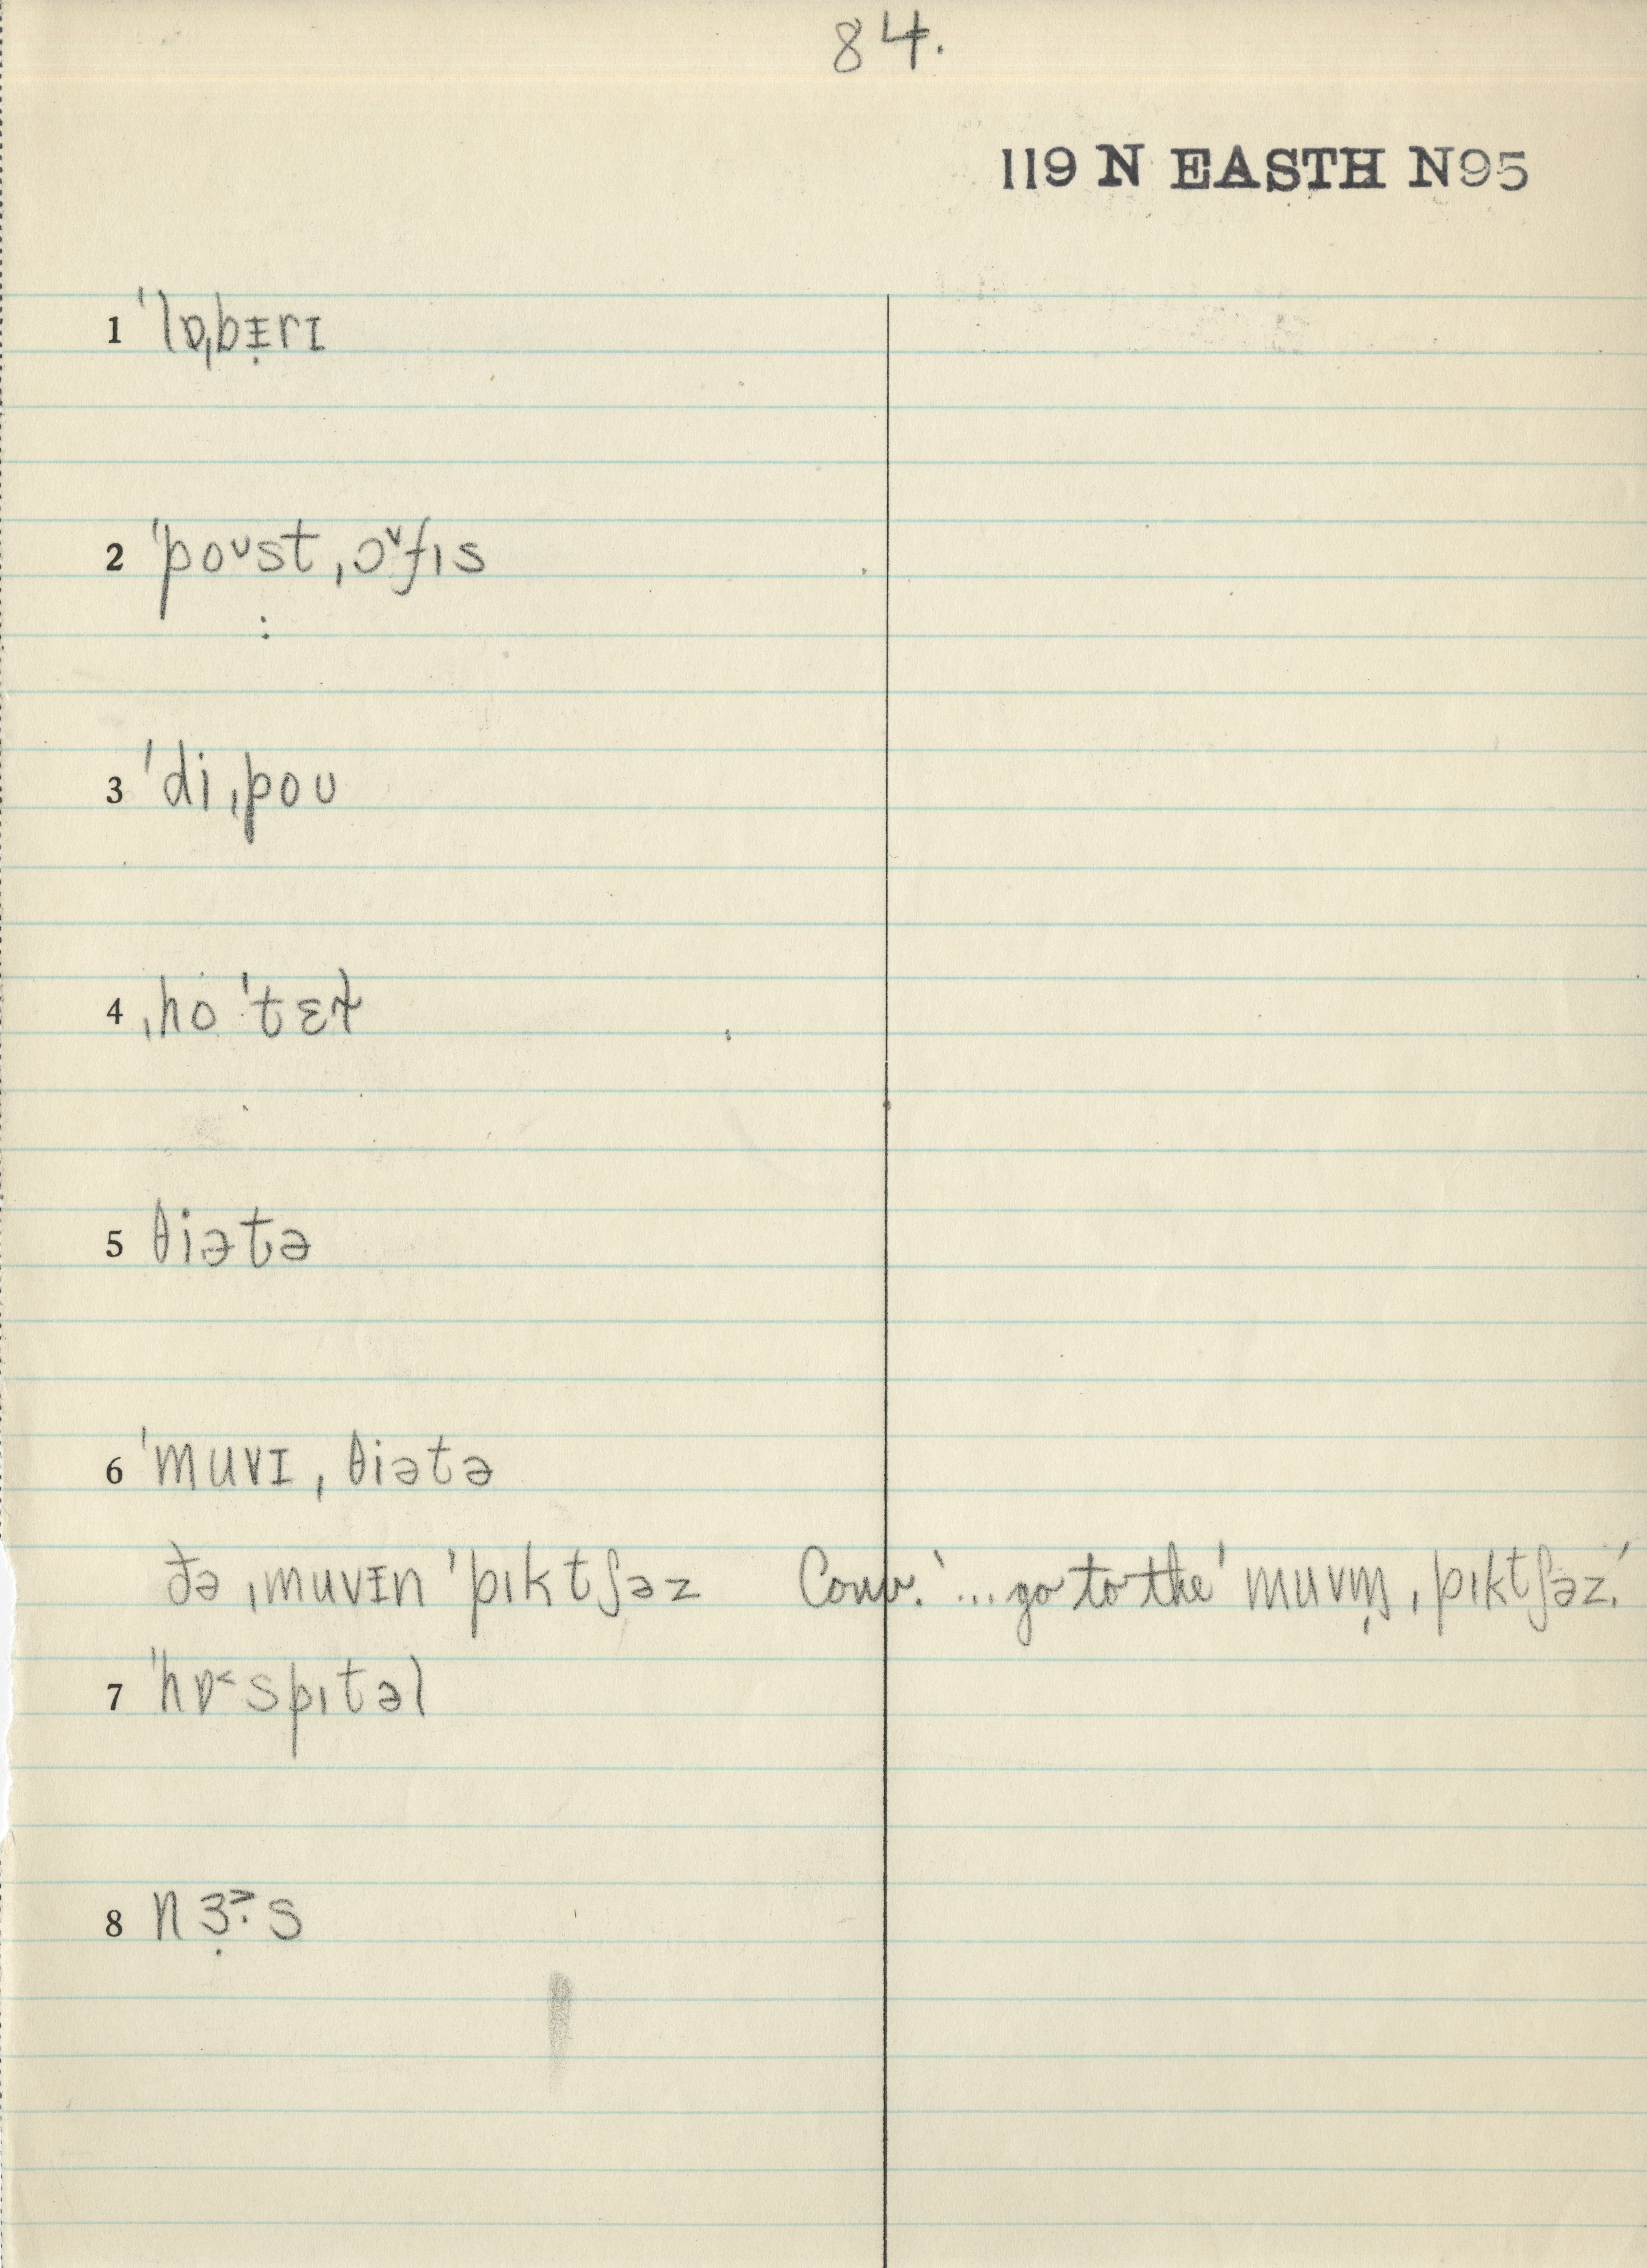 84.
119 N EASTH N95
1 ˈlɒˌbᵻ̣rɪ
2 ˈpoᶷst ˌɔ˅fıs
3 ˈdi ˌpoʊ
4 ˌho ˈtɛɫ
5 θiət̬ə
6 ˈmuvɪ ˌθiətə
ðə ˌmuvᵻn ˈpıktʃəz Conv. '... go to the ˈmuvıņ ˌpıktʃəz.'
7 ˈhɒ˂spıtəl
8 nɜ̣˃·s